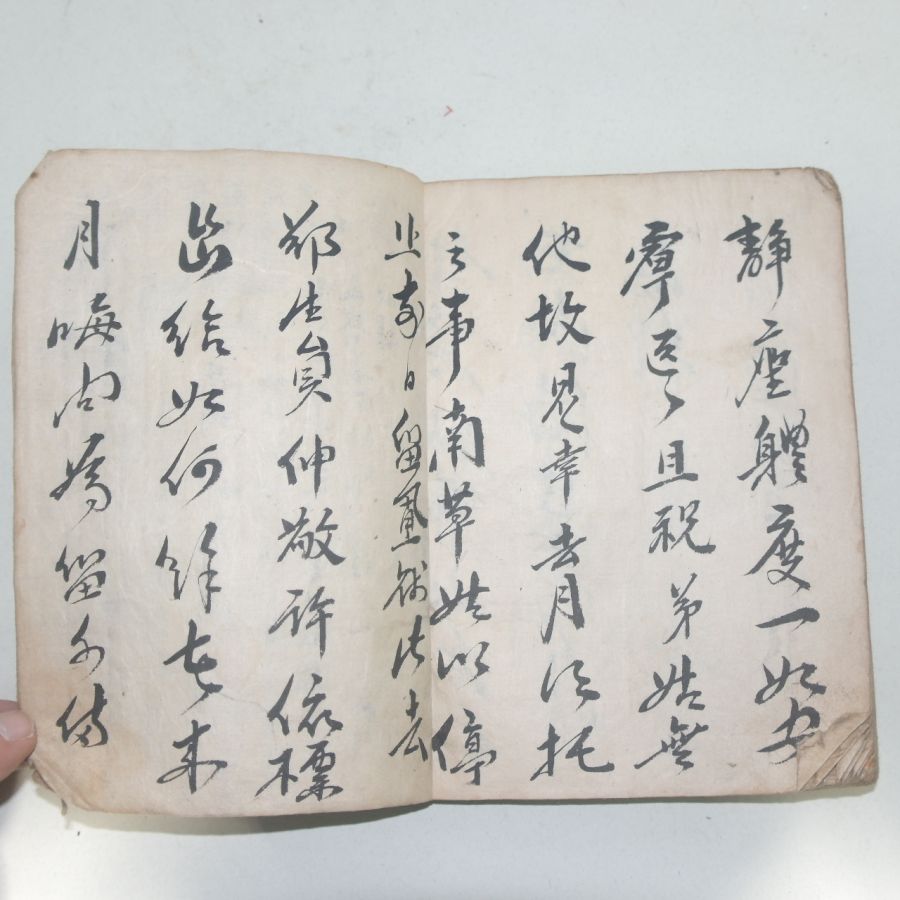 靜座體度一如安
寧區〻且祝弟姑無
他故是幸去月後托
之事南草姑以停
止前日留置錢條去
鄭生員仲敬許依標
出給如何餘在來
月晦間爲留不備